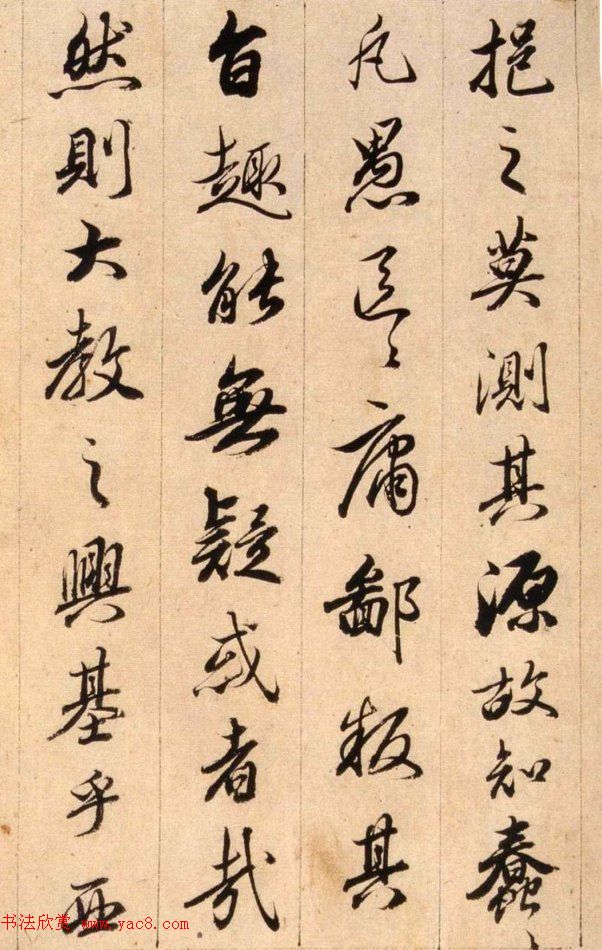 挹之莫測其源故知蠢〻
凡愚區〻庸鄙投其
旨趣能無疑惑者哉
然則大教之興基乎西
书法欣赏 www.yac8.com